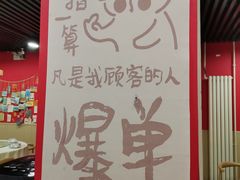 掐指
一算
凡是我顾客的人
爆单